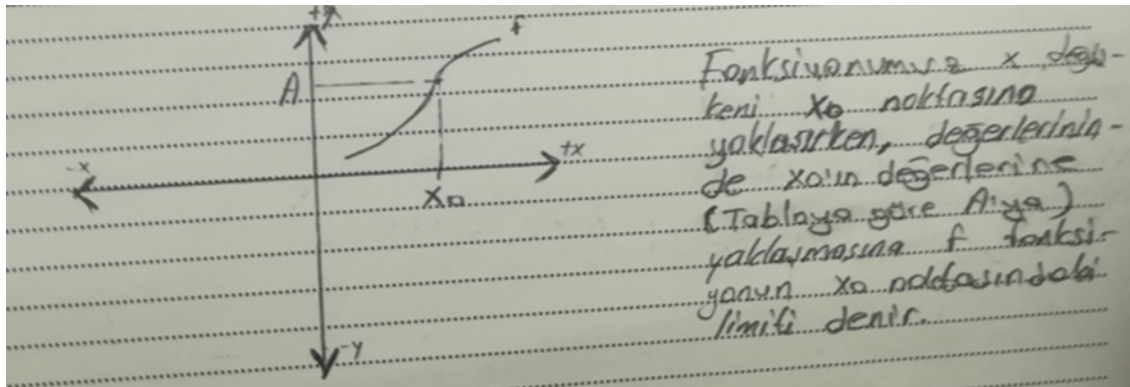 +y
f
A
-x
+x
x0
-y
Fonksiyonumuz x değiş-
keni x0 noktasına
yaklaşırken, değerlerinin-
de x0'ın değerlerine
(Tabloya göre A'ya)
yaklaşmasına f fonksi-
yonun x0 noktasındaki
limiti denir.